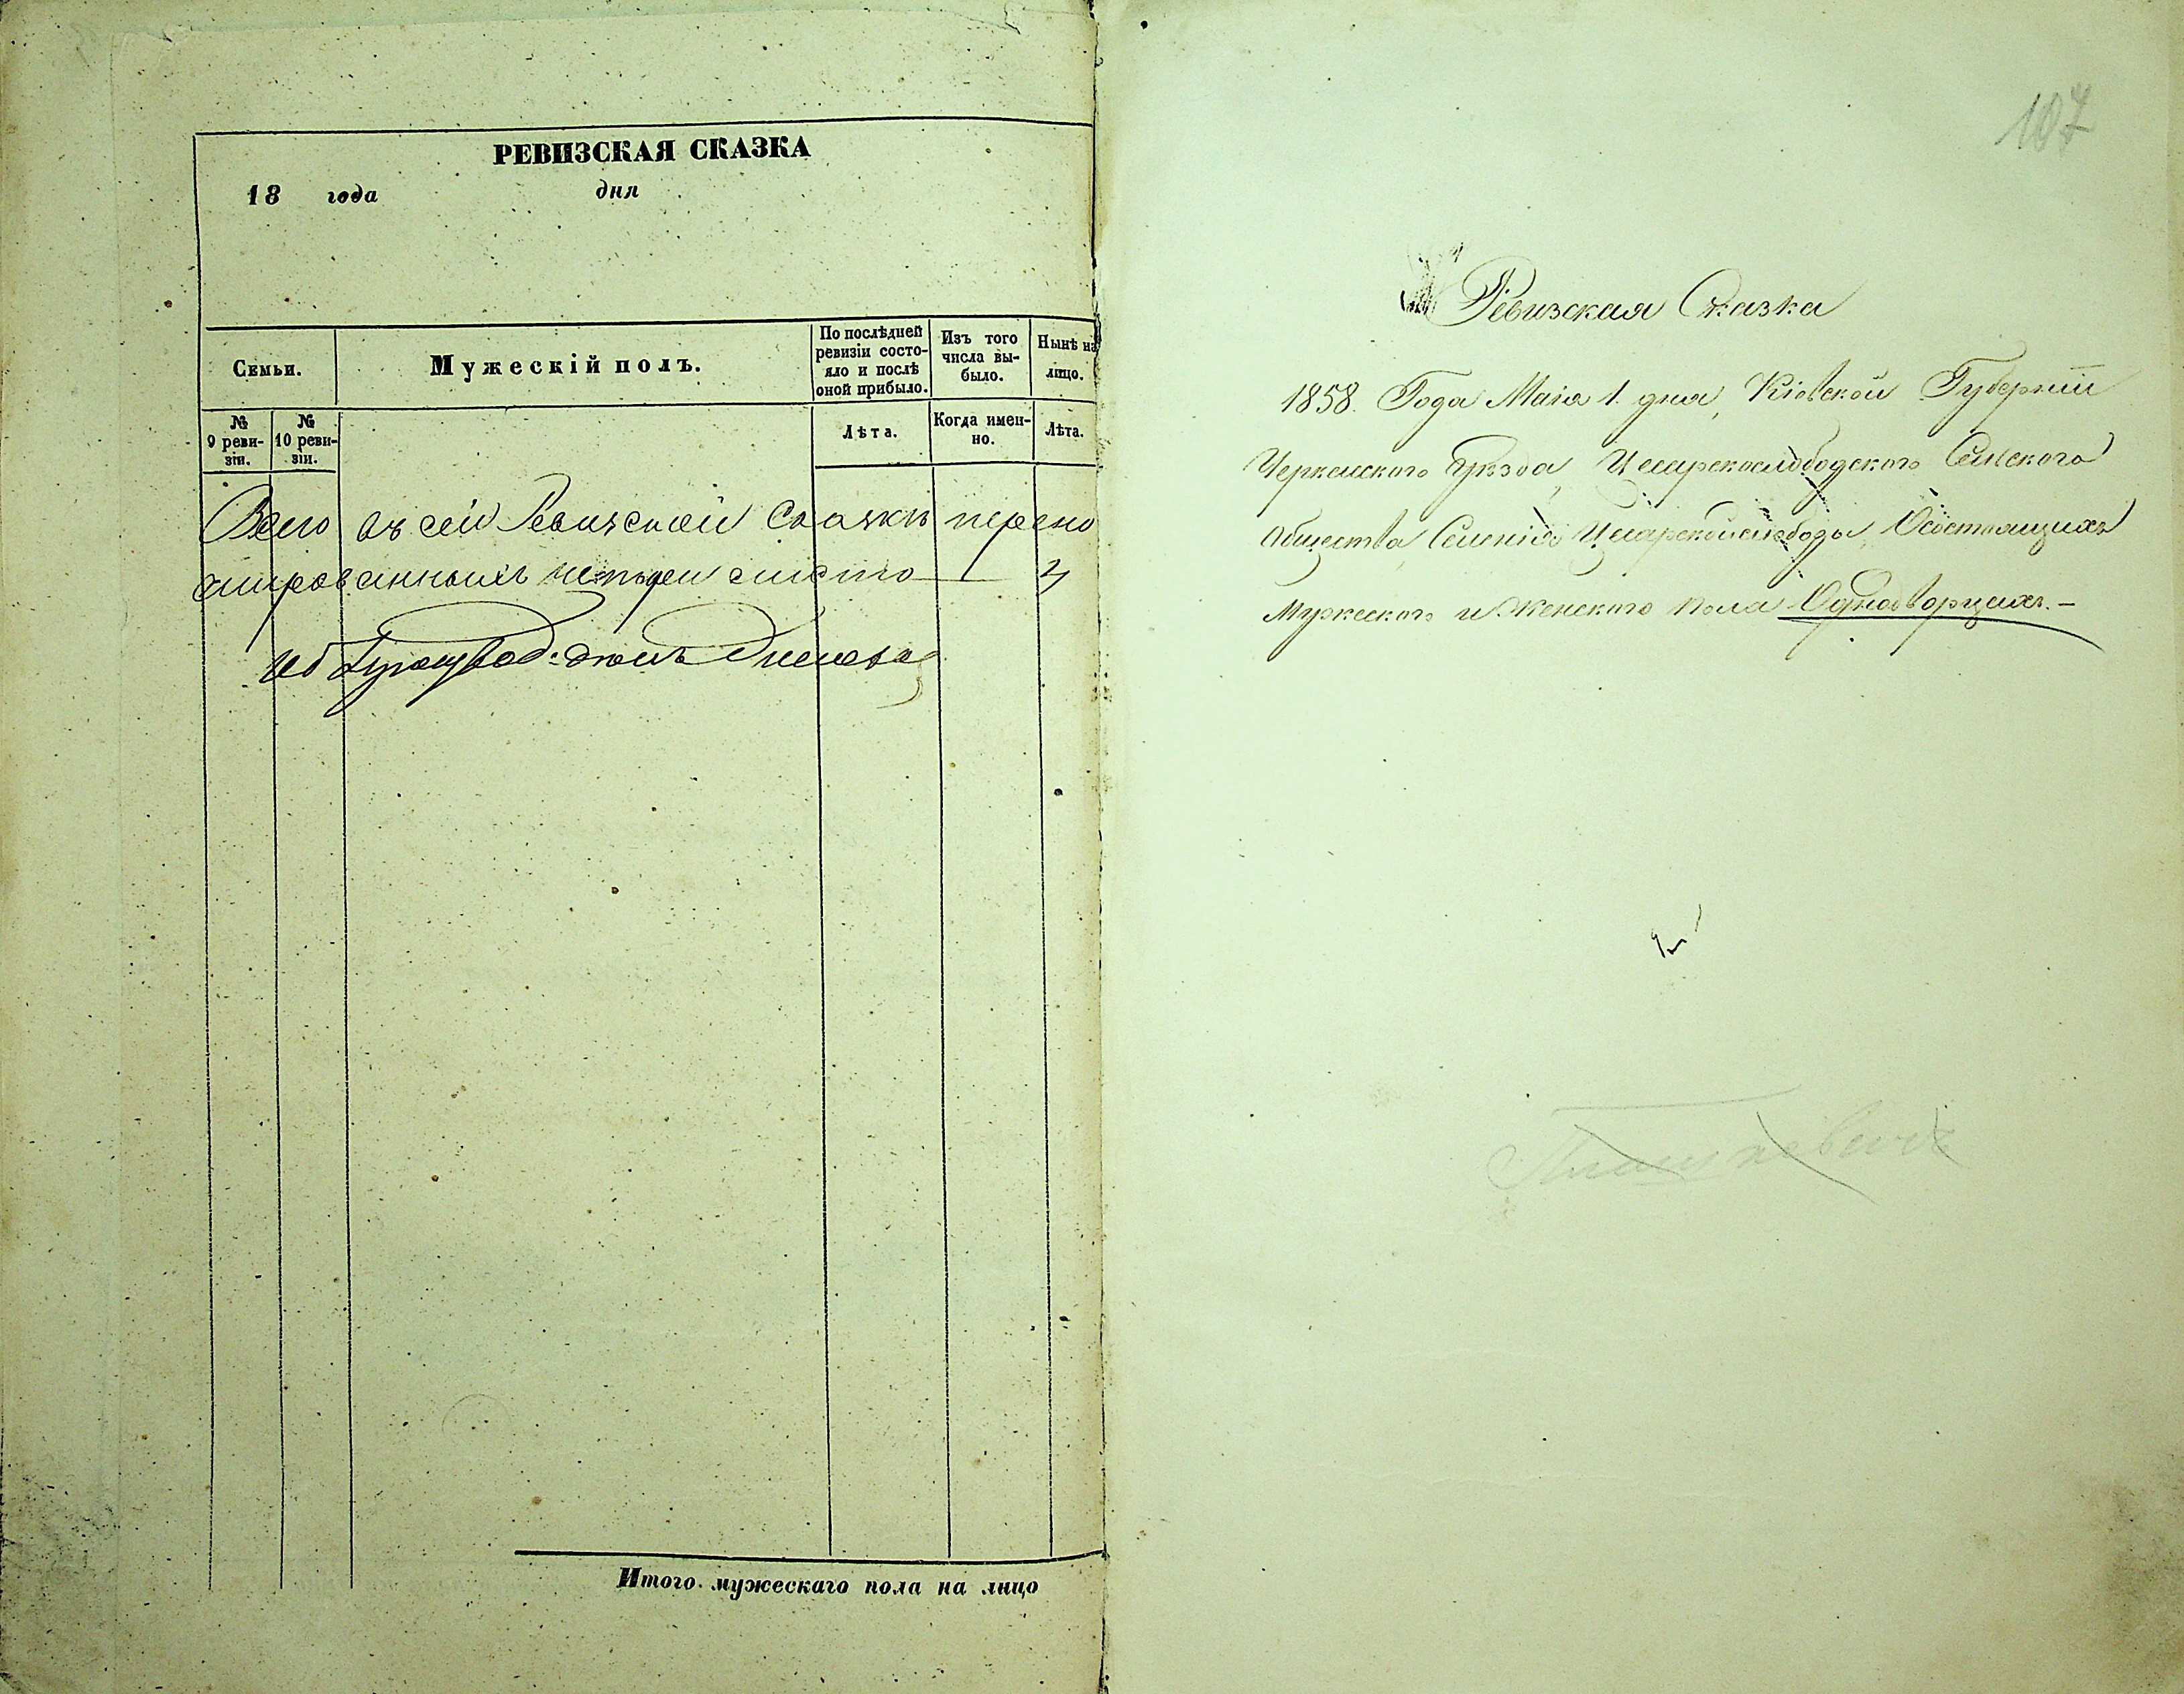 РЕВИЗСКАЯ СКАЗКА
18 года дня
Семьи.
Мужескій полъ.
По послѣдней ревизіи состояло и послѣ оной прибыло.
Изъ того числа выбыло.
Нынѣ на лицо.
№ 9 ревизіи.
№ 10 ревизіи.
Лѣта.
Когда именно.
Лѣта.
Всего въ сей Ревизской Сказки перену
мированныхъ четыри листа 4
Итого мужескаго пола на лицо
107
Ревизская Сказка
1858. Года Маія 1. дня, Кіевской Губерніи
Черкаского Уѣзда, Цесарскослободского Сельского
Общества, Селенія Цесарскойслободы, Осостоящихъ
Мужеского и Женского пола Однодворцахъ.-